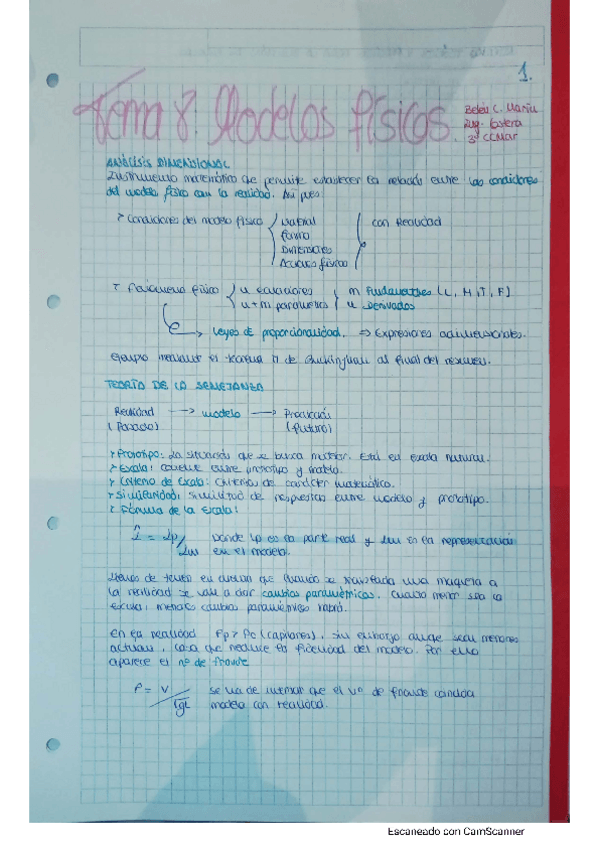 1.
Tema 8. Modelos físicos.
Belén C. Marín
Ing. Costera
3º CCMar
ANÁLISIS DIMENSIONAL
Instrumento matemático que permite establecer la relación entre las condiciones
del modelo físico con la realidad. Así pues
> Condiciones del modelo físico
Material
Forma
Dimensiones
Acciones físicas
con Realidad
> Fenómeno físico
n ecuaciones
n+m parámetros
m Fundamentales (L, M, T, F)
n Derivados
Leyes de proporcionalidad. => Expresiones adimensionales.
Ejemplo mediante el teorema π de Buckingham al final del resumen.
TEORÍA DE LA SEMEJANZA
Realidad → modelo → Predicción
(Pasado) (futuro)
> Prototipo: La situación que se busca modelar. Está en escala natural.
> Escala: cociente entre prototipo y modelo.
> Criterio de Escala: criterios de carácter matemático.
> Similaridad: similitud de respuestas entre modelo y prototipo.
> Fórmula de la Escala:
= Lp/Lm Donde Lp es la parte real y Lm es la representación
en el modelo.
Hemos de tener en cuenta que cuando se transfiera una maqueta a
la realidad se van a dar cambios paramétricos. Cuanto menor sea la
escala, menores cambios paramétricos habrá.
En la realidad Fg > Fc (capilares), sin embargo aunque sean menores
actúan, cosa que reduce la fidelidad del modelo. Por ello
aparece el nº de froude
F = V/√gL se ha de intentar que el nº de froude coincida
modelo con realidad.
Escaneado con CamScanner